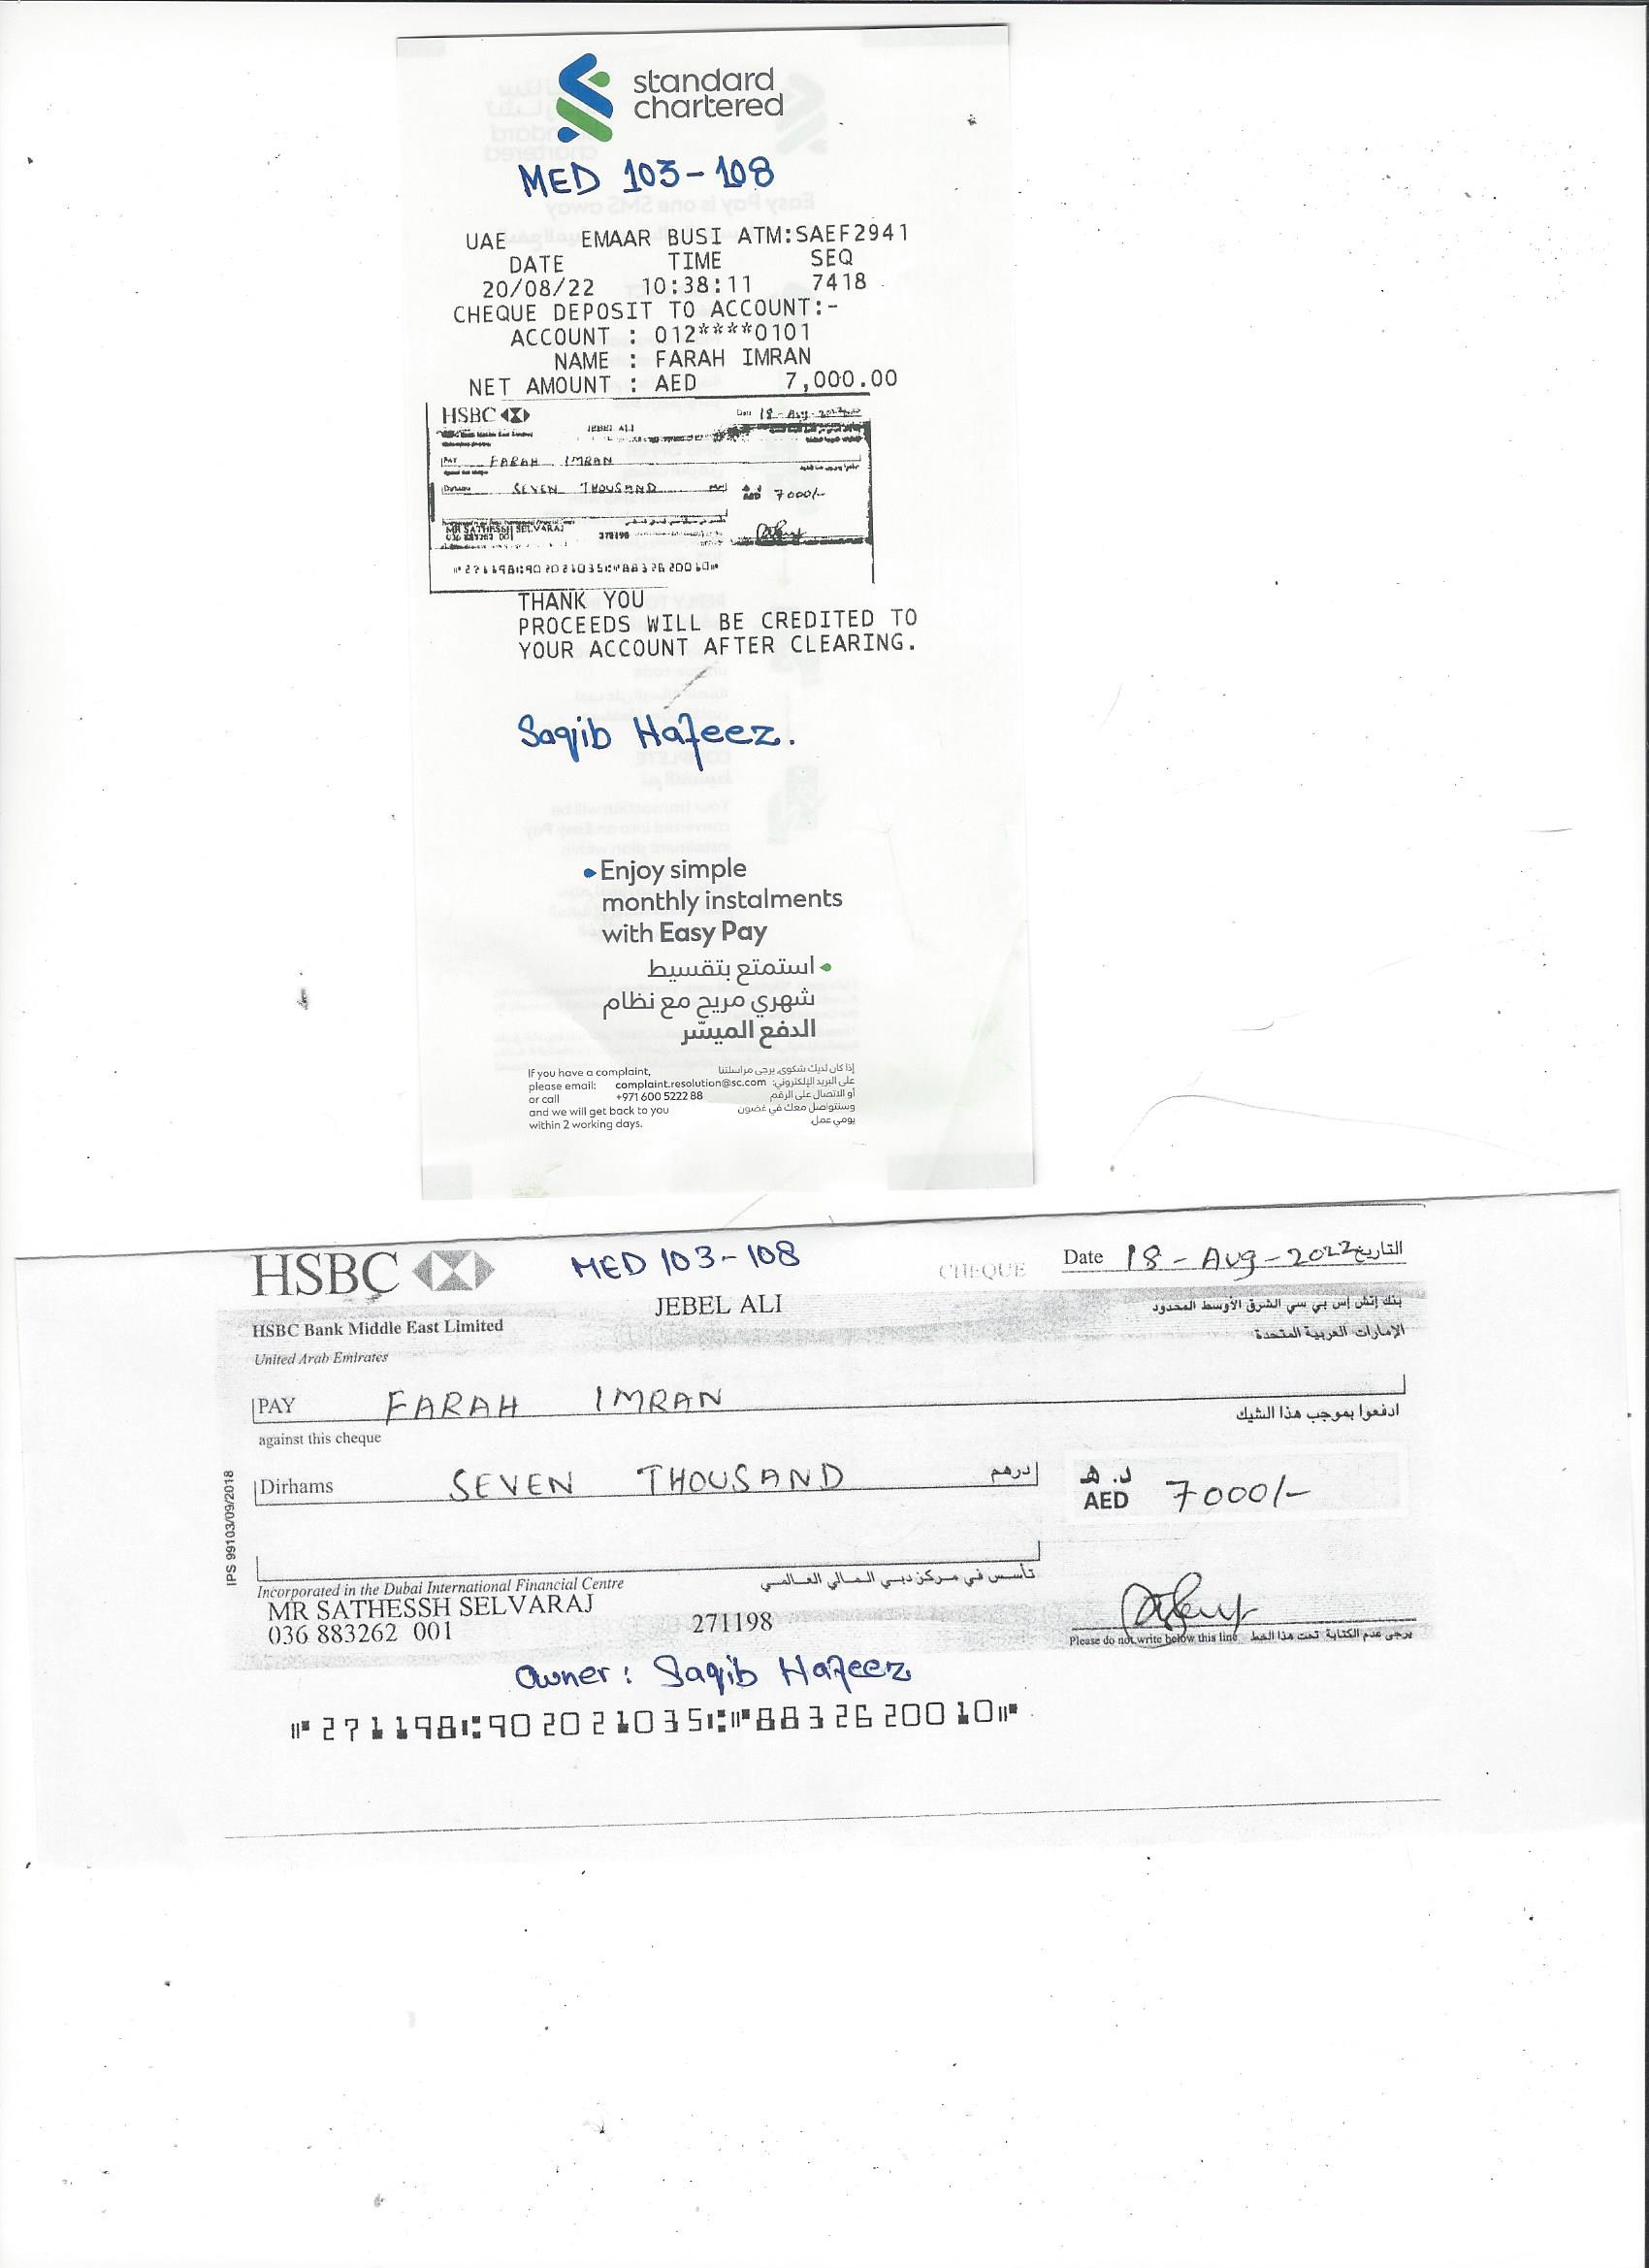 standard
chartered
MED 103-108
UAE EMAAR BUSI ATM:SAEF2941
DATE TIME SEQ
20/08/22 10:38:11 7418
CHEQUE DEPOSIT TO ACCOUNT:-
ACCOUNT : 012****0101
NAME : FARAH IMRAN
NET AMOUNT : AED 7,000.00
HSBC
Date 18-Aug-2022
JEBEL ALI
PAY FARAH IMRAN
Dirhams SEVEN THOUSAND
AED 7000/-
MR SATHESSH SELVARAJ
036 883262 001
271198
⑈271198⑆902021035⑆⑈883262001 0⑈
THANK YOU
PROCEEDS WILL BE CREDITED TO
YOUR ACCOUNT AFTER CLEARING.
Saqib Hafeez.
Enjoy simple
monthly instalments
with Easy Pay
استمتع بتقسيط
شهري مريح مع نظام
الدفع الميسّر
If you have a complaint,
please email: complaint.resolution@sc.com
or call +971 600 5222 88
and we will get back to you
within 2 working days.
إذا كان لديك شكوى، يرجى مراسلتنا
على البريد الإلكتروني:
أو الاتصال على الرقم
وسنتواصل معك في غضون
يومي عمل.
HSBC MED 103-108 CHEQUE Date 18-Aug-2022 التاريخ
JEBEL ALI
HSBC Bank Middle East Limited
بنك إتش إس بي سي الشرق الأوسط المحدود
United Arab Emirates
الإمارات العربية المتحدة
PAY FARAH IMRAN
against this cheque
ادفعوا بموجب هذا الشيك
Dirhams SEVEN THOUSAND درهم
د.هـ
AED 7000/-
IPS 99103/09/2018
Incorporated in the Dubai International Financial Centre
تأسس في مركز دبي المالي العالمي
MR SATHESSH SELVARAJ
036 883262 001
271198
Please do not write below this line يرجى عدم الكتابة تحت هذا الخط
Owner: Saqib Hafeez
⑈271198⑆902021035⑆⑈883262001 0⑈